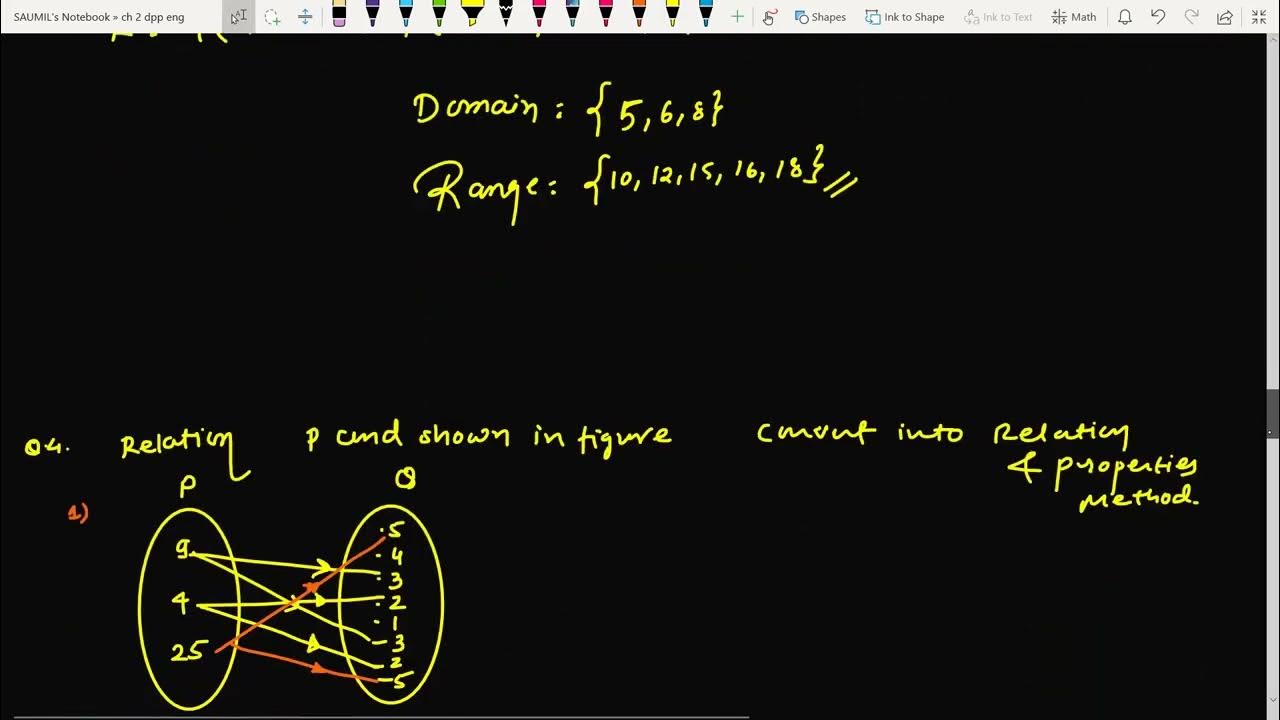 SAUMIL's Notebook » ch 2 dpp eng
Shapes
Ink to Shape
Ink to Text
Math
Domain : {5, 6, 8}
Range : {10, 12, 15, 16, 18}
Q4. Relation P and shown in figure convert into Relation
& properties
method.
P Q
1)
9
4
25
. 5
. 4
. 3
. 2
. 1
- 3
- 2
- 5